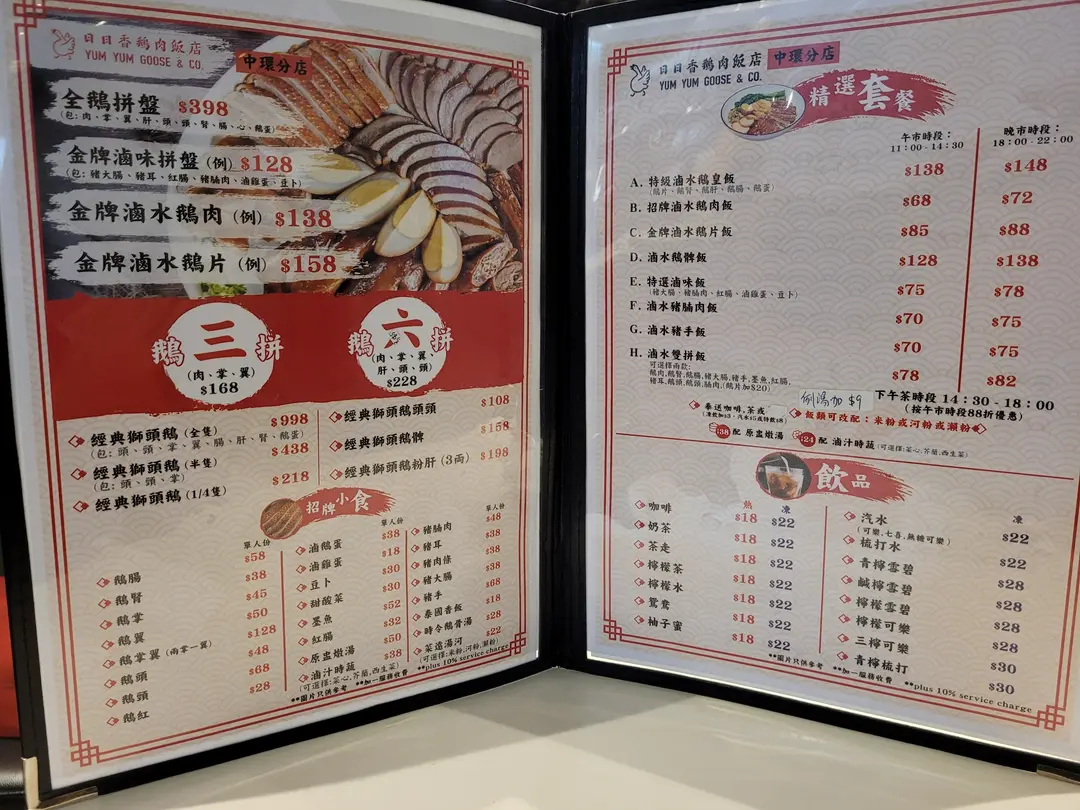 日日香鵝肉飯店
YUM YUM GOOSE & CO.
中環分店
全鵝拼盤 $398
(包:肉、掌、翼、肝、頭、頸、腎、腸、心、鵝蛋)
金牌滷味拼盤(例) $128
(包:豬大腸、豬耳、紅腸、豬腩肉、滷雞蛋、豆卜)
金牌滷水鵝肉(例) $138
金牌滷水鵝片(例) $158
鵝三拼
(肉、掌、翼)
$168
鵝六拼
(肉、掌、翼、
肝、頭、頸)
$228
經典獅頭鵝(全隻) $998
(包:頭、頸、掌、翼、腸、肝、腎、鵝蛋)
經典獅頭鵝(半隻) $438
(包:頭、頸、掌)
經典獅頭鵝(1/4隻) $218
經典獅頭鵝頭頸 $108
經典獅頭鵝髀 $158
經典獅頭鵝粉肝(3両) $198
招牌小食
單人份
鵝腸 $58
鵝腎 $38
鵝掌 $45
鵝翼 $50
鵝掌翼(兩掌一翼) $128
鵝頭 $48
鵝頸 $68
鵝紅 $28
單人份
滷鵝蛋 $38
滷雞蛋 $18
豆卜 $30
甜酸菜 $30
墨魚 $52
紅腸 $32
原盅燉湯 $50
滷汁時蔬 $38
(可選擇:菜心,芥蘭,西生菜)
單人份
豬腩肉 $48
豬耳 $38
豬肉條 $38
豬大腸 $38
豬手 $68
泰國香飯 $18
時令鵝骨湯 $28
菜遠湯河 $22
(可選擇:米粉,河粉,瀨粉)
**圖片只供參考 **加一服務收費 **plus 10% service charge
日日香鵝肉飯店
YUM YUM GOOSE & CO.
中環分店
精選套餐
午市時段:
11:00-14:30
晚市時段:
18:00-22:00
A. 特級滷水鵝皇飯 $138 $148
(鵝片、鵝腎、鵝肝、鵝腸、鵝蛋)
B. 招牌滷水鵝肉飯 $68 $72
C. 金牌滷水鵝片飯 $85 $88
D. 滷水鵝髀飯 $128 $138
E. 特選滷味飯 $75 $78
(豬大腸、豬腩肉、紅腸、滷雞蛋、豆卜)
F. 滷水豬腩肉飯 $70 $75
G. 滷水豬手飯 $70 $75
H. 滷水雙拼飯 $78 $82
可選擇兩款:
鵝肉,鵝腎,鵝腸,豬大腸,豬手,墨魚,紅腸,
豬耳,鵝頭,鵝頸,腩肉,(鵝片加$20)
例湯加 $9
下午茶時段 14:30 - 18:00
(按午市時段88折優惠)
奉送咖啡,茶或
(凍飲加$3、汽水$5或特飲$8)
飯類可改配:米粉或河粉或瀨粉
$38 配 原盅燉湯
$24 配 滷汁時蔬(可選擇:菜心,芥蘭,西生菜)
飲品
熱 凍
咖啡 $18 $22
奶茶 $18 $22
茶走 $18 $22
檸檬茶 $18 $22
檸檬水 $18 $22
鴛鴦 $18 $22
柚子蜜 $18 $22
凍
汽水 $22
(可樂,七喜,無糖可樂)
梳打水 $22
青檸雪碧 $28
鹹檸雪碧 $28
檸檬雪碧 $28
檸檬可樂 $28
三檸可樂 $30
青檸梳打 $30
**圖片只供參考 **加一服務收費 **plus 10% service charge